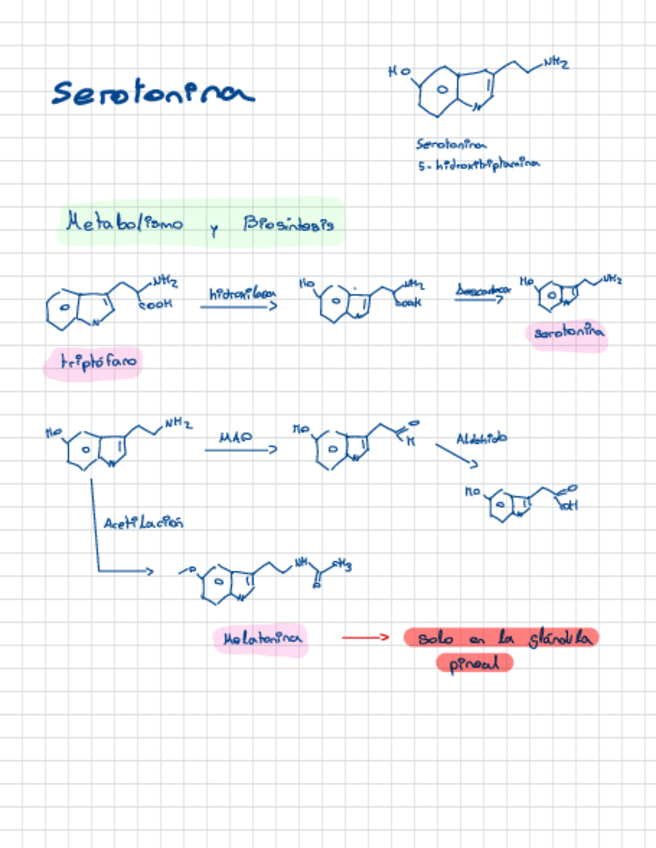 Serotonina
HO
NH2
N
Serotonina
5-hidroxitriptamina
Metabolismo y Biosíntesis
NH2
COOH
N
hidroxilasa
HO
NH2
COOH
N
HO
NH2
N
triptófano
serotonina
HO
NH2
N
MAO
HO
O
H
N
Aldehido
HO
O
OH
N
Acetilación
O
NH
CH3
O
N
Melatonina
solo en la glándula
pineal